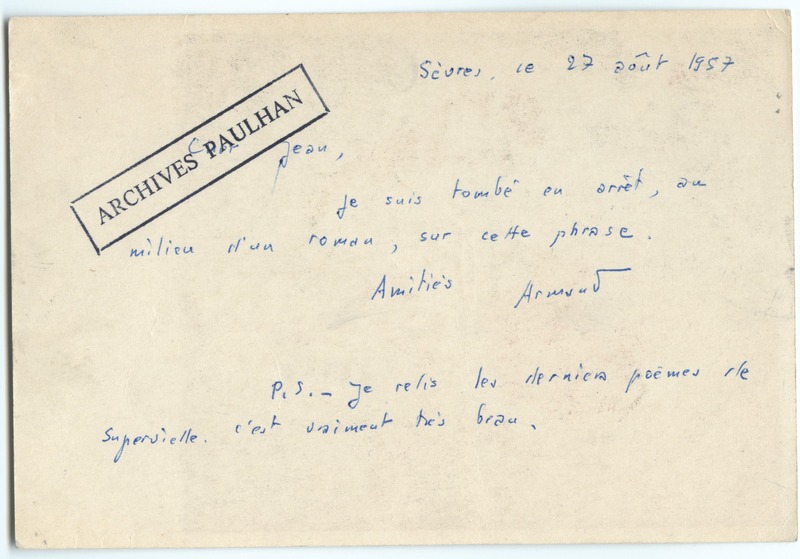 Sèvres, le 27 août 1957
ARCHIVES PAULHAN
Cher Jean,
Je suis tombé en arrêt, au
milieu d'un roman, sur cette phrase.
Amitiés Armand
P.S. – Je relis les derniers poèmes de
Supervielle. c'est vraiment très beau.